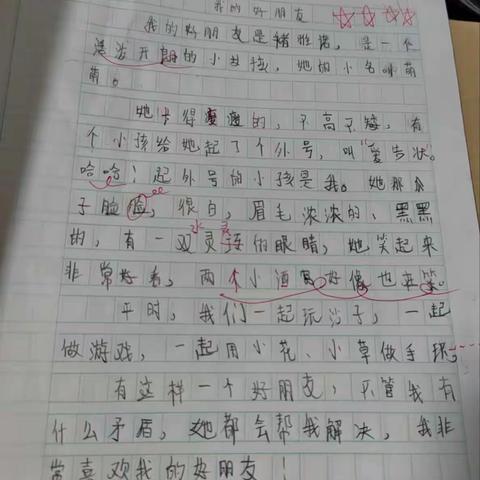 我的好朋友
我的好朋友是褚雅诺，是一个
活泼开朗的小女孩，她的小名叫萌
萌。
她长得瘦瘦的，不高不矮，有
个小孩给她起了个外号，叫“爱告状”。
哈哈！起外号的小孩是我。她那瓜
子脸，很白，眉毛浓浓的、黑黑
的，有一双水灵灵的眼睛，她笑起来
非常好看，两个小酒窝好像也来笑。
平时，我们一起玩沙子，一起
做游戏，一起用小花、小草做手环。
有这样一个好朋友，不管我有
什么矛盾，她都会帮我解决，我非
常喜欢我的好朋友！